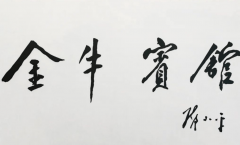 金牛賓館
邓小平